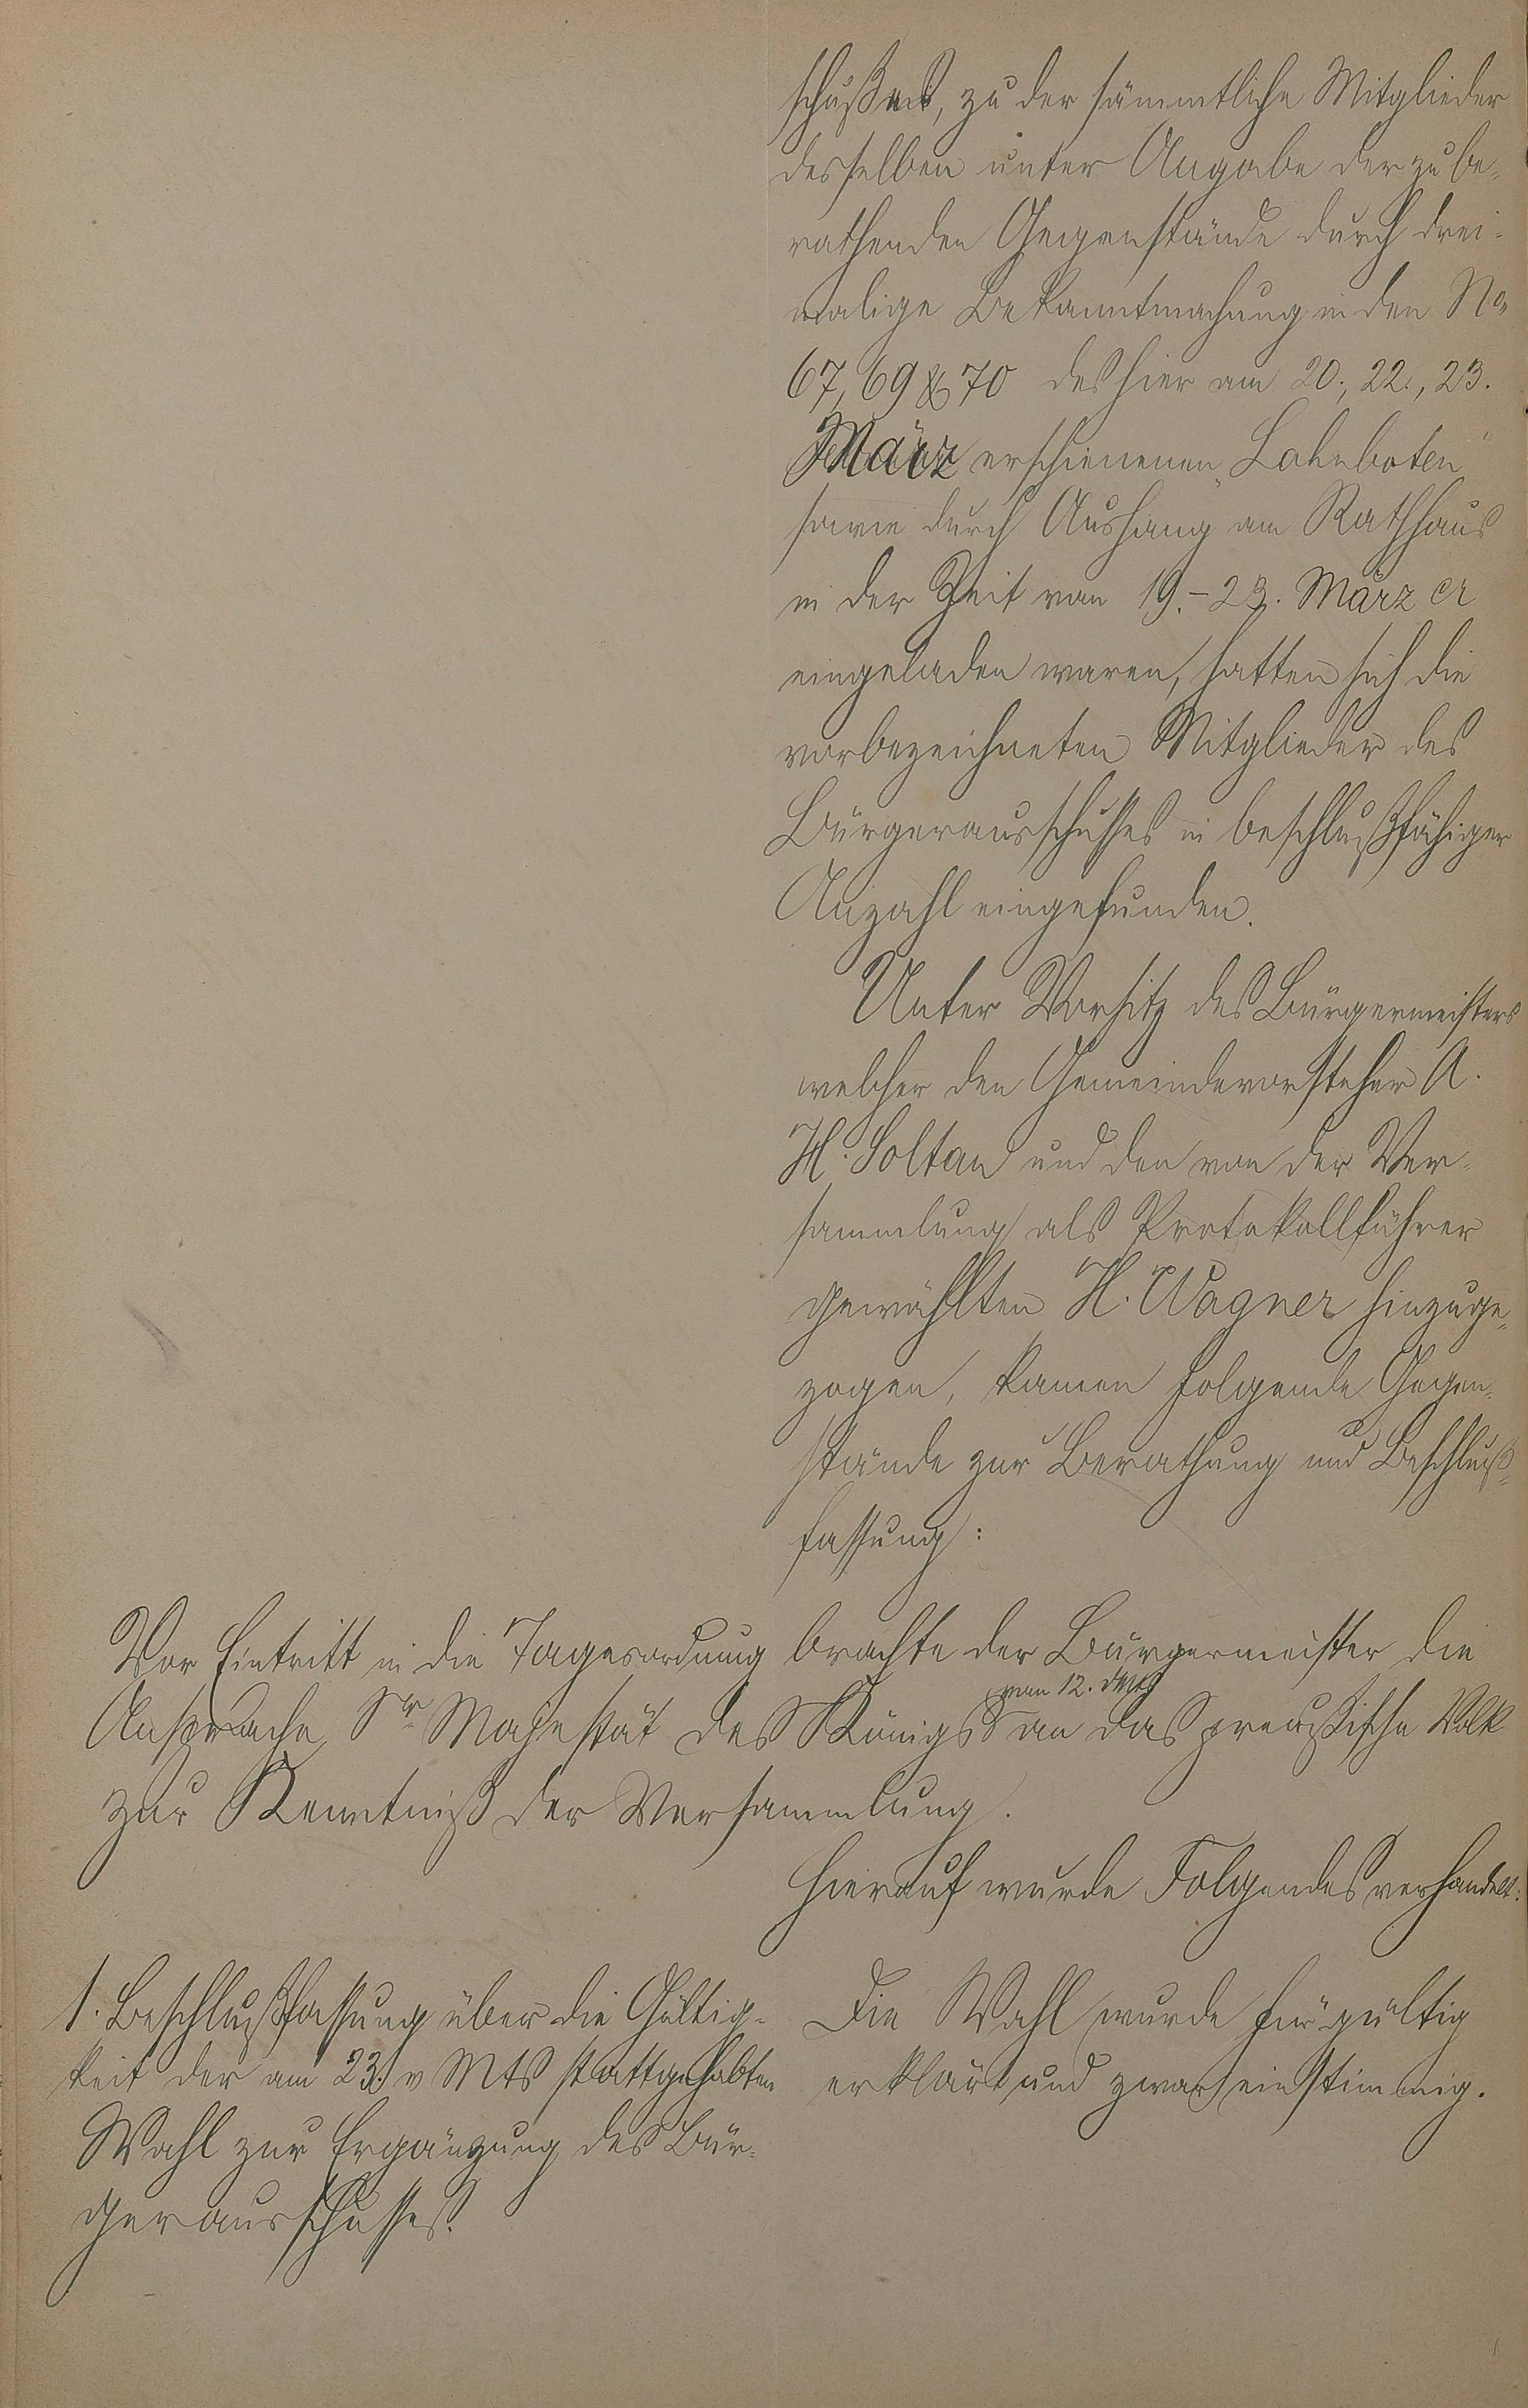 schußes, zu der sämmtliche Mitglieder
desselben unter Angabe der zu be-
rathenden Gegenstände durch drei-
malige Bekanntmachung in den No
67, 69 & 70 des hier am 20., 22., 23.
März erschienenen „Lahnboten"
sowie durch Aushang am Rathhaus
in der Zeit von 19.-23. März cr
eingeladen waren, hatten sich die
vorbezeichneten Mitglieder des
Bürgerausschusses in beschlußfähiger
Anzahl eingefunden.
Unter Vorsitz des Bürgermeisters
welcher den Gemeindevorsteher A.
H. Soltan und den von der Ver-
sammlung als Protokollführer
gewählten H. Wagner hinzuge-
zogen, kamen folgende Gegen-
stände zur Berathung und Beschluß-
fassung:
Vor Eintritt in die Tagesordnung brachte der Bürgermeister die
vom 12. d Mts
Ansprache Sr Majestät des Königs an das preußische Volk
zur Kenntniß der Versammlung.
Hierauf wurde Folgendes verhandelt:
1. Beschlußfassung über die Gültig-
keit der am 23. v Mts stattgehabten
Wahl zur Ergänzung des Bür-
gerausschusses.
Die Wahl wurde für gültig
erklärt und zwar einstimmig.